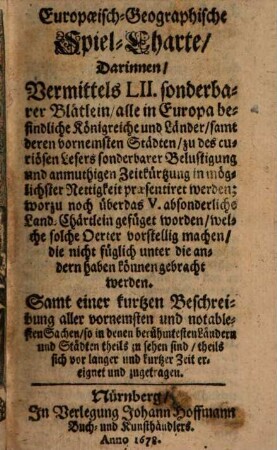 Europæisch-Geographische
Spiel-Charte/
Darinnen/
Vermittels LII. sonderba-
rer Blätlein/alle in Europa be-
findliche Königreiche und Länder/samt
deren vorneinsten Städten/zu des cu-
riösen Lesers sonderbarer Belustigung
und anmuthigen Zeitkürtzung in mög-
lichster Nettigkeit præsentiret werden;
worzu noch überdas V. absonderliche
Land-Chärtlein gefüget worden/wel-
che solche Oerter vorstellig machen/
die nicht füglich unter die an-
dern haben können gebracht
werden.
Samt einer kurtzen Beschrei-
bung aller vornemsten und notable-
sten Sachen/so in denen berühmtesten Ländern
und Städten theils zu sehen sind/theils
sich vor langer und kurtzer Zeit er-
eignet und zugetragen.
Nürnberg/
In Verlegung Johann Hoffmann
Buch- und Kunsthändlers.
Anno 1678.